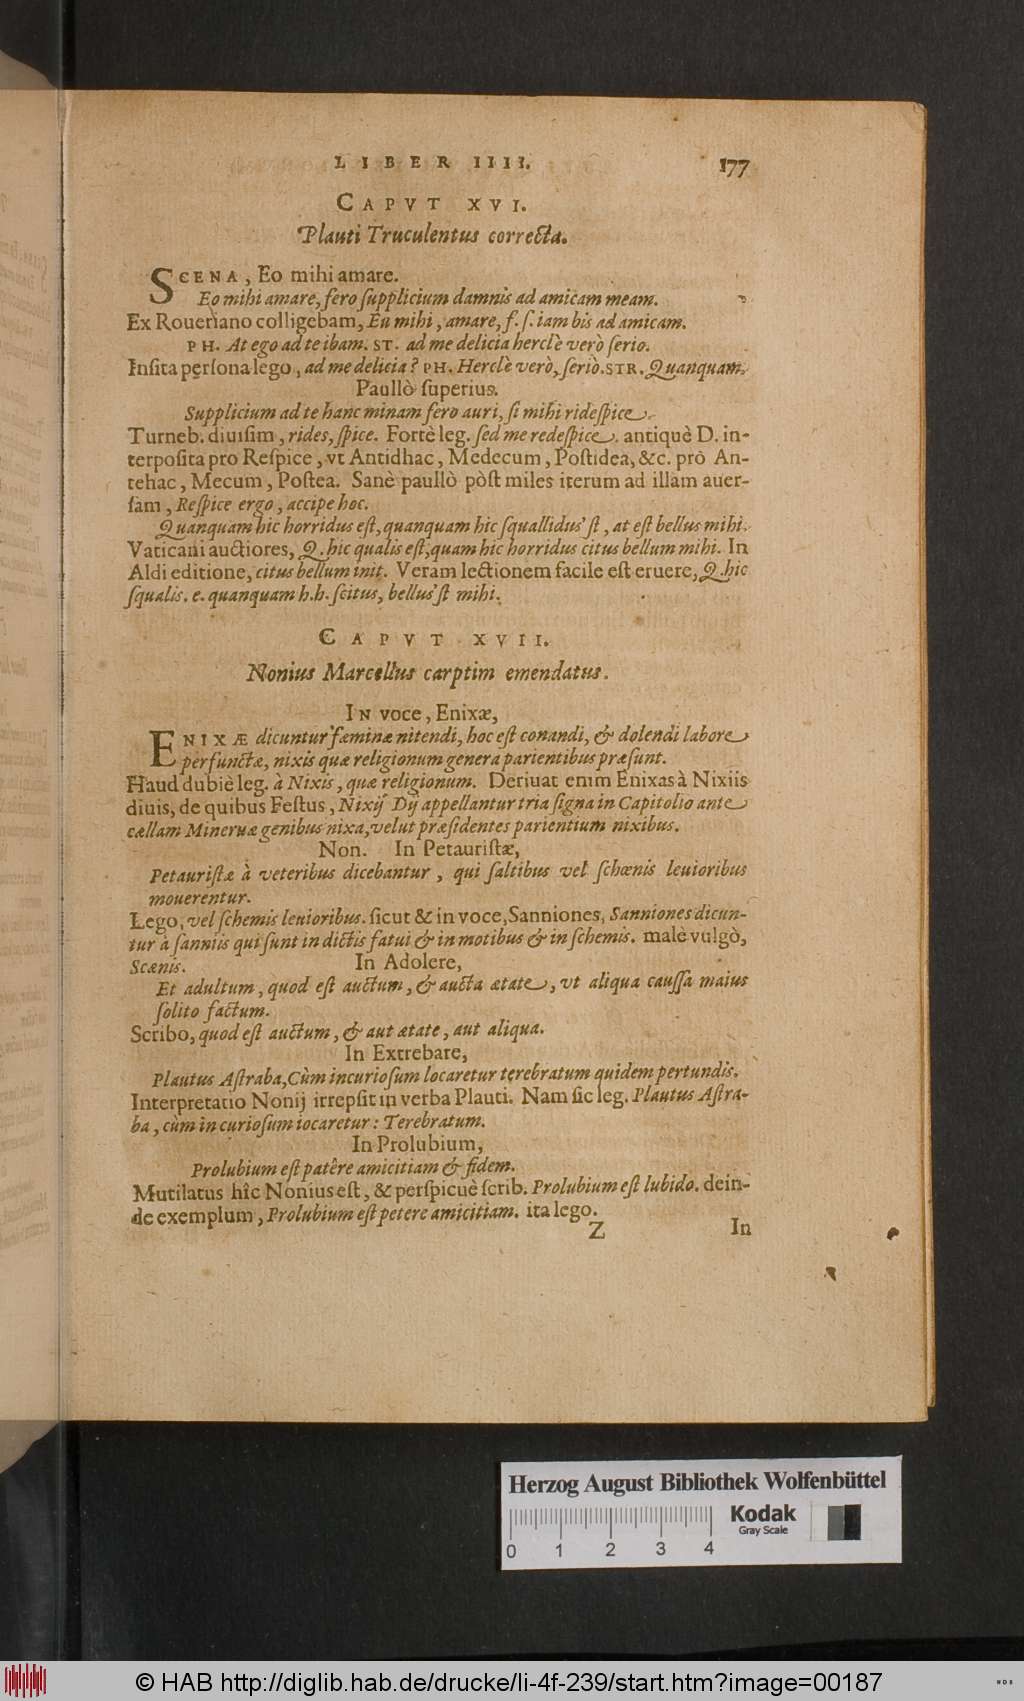 LIBER IIII. 177
CAPVT XVI.
Plauti Truculentus correcta.
SCENA, Eo mihi amare.
Eo mihi amare, fero ſupplicium damnis ad amicam meam.
Ex Roueriano colligebam, En mihi, amare, f. ſ. iam bis ad amicam.
PH. At ego ad te ibam. ST. ad me delicia herclè verò ſerio.
Inſita perſona lego, ad me delicia? PH. Herclè verò, ſeriò. STR. Quanquam.
Paullò ſuperius.
Supplicium ad te hanc minam fero auri, ſi mihi rideſpice.
Turneb. diuiſim, rides, ſpice. Fortè leg. ſed me redeſpice. antiquè D. in-
terpoſita pro Reſpice, vt Antidhac, Medecum, Poſtidea, &c. prò An-
tehac, Mecum, Poſtea. Sanè paullò pòſt miles iterum ad illam auer-
ſam, Reſpice ergo, accipe hoc.
Quanquam hic horridus eſt, quanquam hic ſquallidus'ſt, at eſt bellus mihi.
Vaticani auctiores, Q. hic qualis eſt, quam hic horridus citus bellum mihi. In
Aldi editione, citus bellum init. Veram lectionem facile eſt eruere, Q. hic
ſqualis. e. quanquam h. h. ſcitus, bellus'ſt mihi.
CAPVT XVII.
Nonius Marcellus carptim emendatus.
IN voce, Enixæ,
ENIXÆ dicuntur fæminæ nitendi, hoc eſt conandi, & dolendi labore
perfunctæ, nixis quæ religionum genera parientibus præſunt.
Haud dubiè leg. à Nixis, quæ religionum. Deriuat enim Enixas à Nixiis
diuis, de quibus Feſtus, Nixij Dij appellantur tria ſigna in Capitolio ante
cællam Mineruæ genibus nixa, velut præſidentes parientium nixibus.
Non. In Petauriſtæ,
Petauriſtæ à veteribus dicebantur, qui ſaltibus vel ſchœnis leuioribus
mouerentur.
Lego, vel ſchemis leuioribus. ſicut & in voce, Sanniones, Sanniones dicun-
tur à ſanniis qui ſunt in dictis fatui & in motibus & in ſchemis. malè vulgò,
Scænis. In Adolere,
Et adultum, quod eſt auctum, & aucta ætate, vt aliqua cauſſa maius
ſolito factum.
Scribo, quod eſt auctum, & aut ætate, aut aliqua.
In Extrebare,
Plautus Aſtraba, Cùm incurioſum locaretur terebratum quidem pertundis.
Interpretatio Nonij irrepſit in verba Plauti. Nam ſic leg. Plautus Aſtra-
ba, cùm in curioſum iocaretur: Terebratum.
In Prolubium,
Prolubium eſt patêre amicitiam & fidem.
Mutilatus hîc Nonius eſt, & perſpicuè ſcrib. Prolubium eſt lubido. dein-
de exemplum, Prolubium eſt petere amicitiam. ita lego.
Z In
Herzog August Bibliothek Wolfenbüttel
Kodak
Gray Scale
0 1 2 3 4
© HAB http://diglib.hab.de/drucke/li-4f-239/start.htm?image=00187